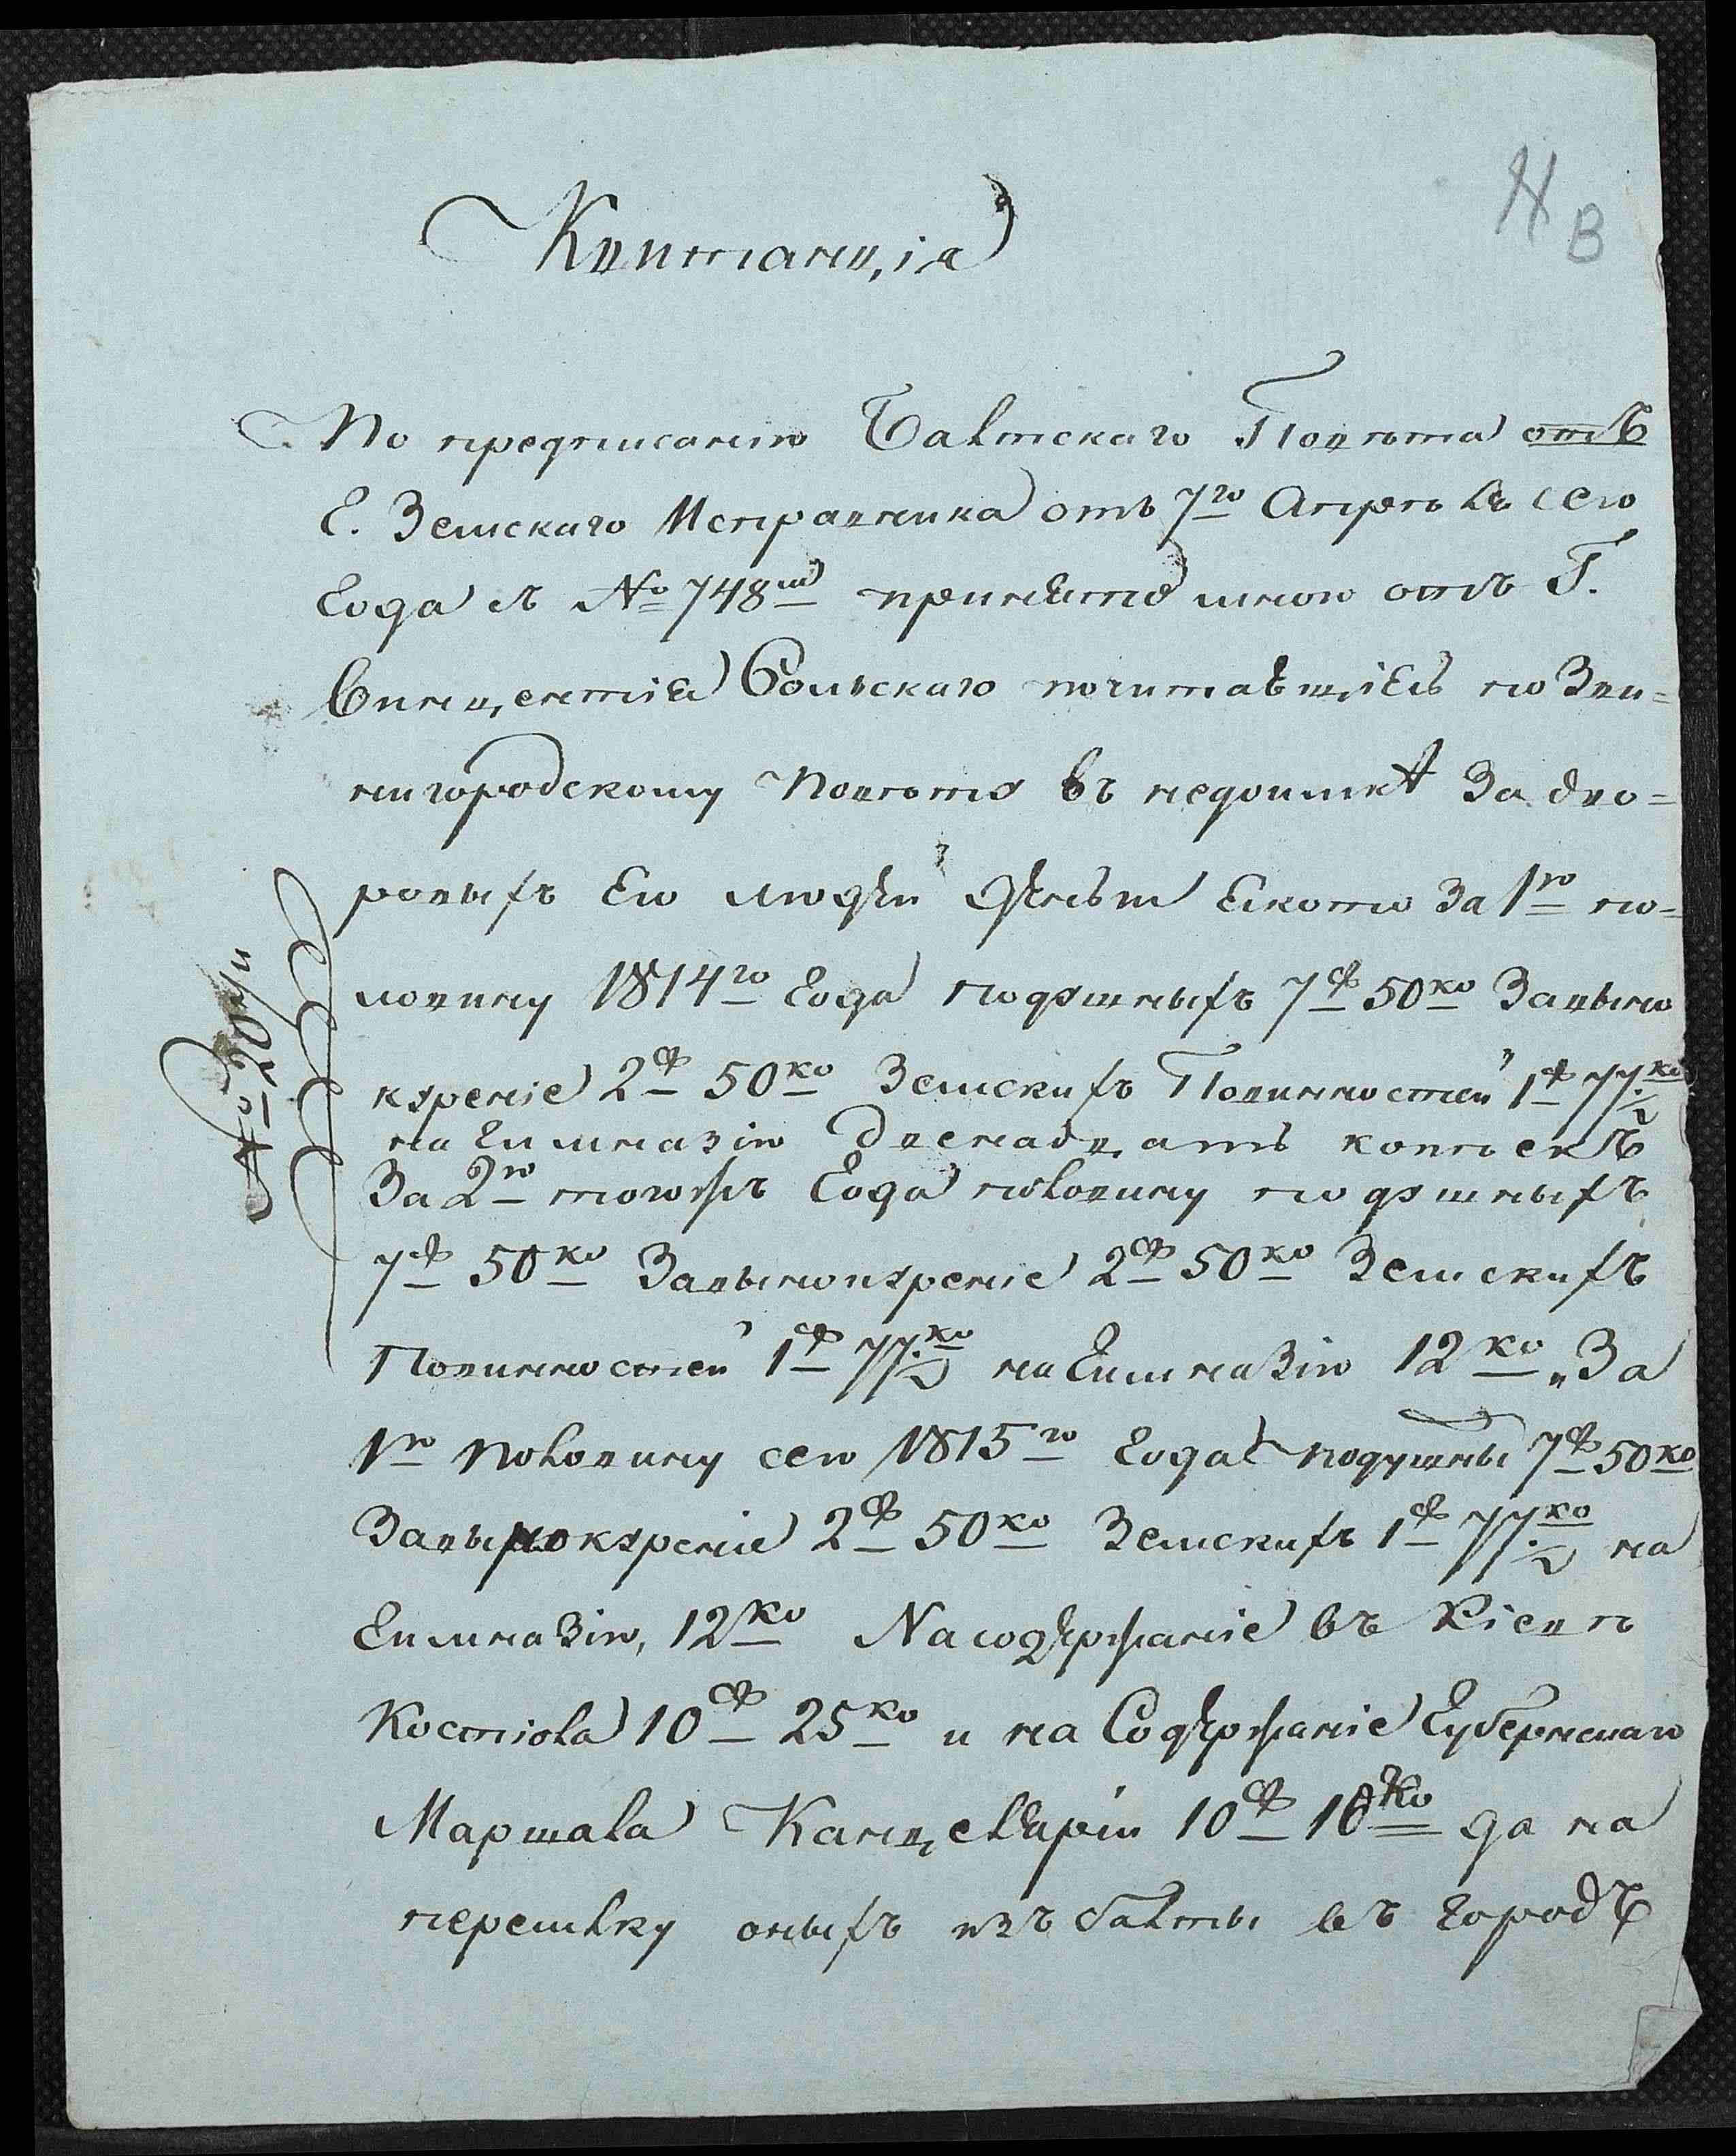 Н В
Квитанція
По предписанию Балтскаго Повѣта отъ
Г. Земскаго Исправника отъ 7го Апрѣля сего
Года съ № 748м принято мною отъ Г.
Винцентія Вольскаго почитавшіесъ по Зве=
нигородскому Повѣту въ недоимкѣ За дво=
ровыхъ Его людей денегъ За 1ю по=
ловину 1814го Года подушныхъ 7р 50ко За вино
куреніе 2р 50ко Земскихъ Повинностей 1р 77½ко
на Гимназію двенадцать копѣекъ
За 2ю тогожъ Года половину подушныхъ
7р 50ко За винокуреніе 2р 50ко Земскихъ
Повинностей 1р 77½ко на Гимназію 12ко „За
1ю половину сего 1815го Года подушны 7р 50ко
За винокуреніе 2р 50ко Земскихъ 1р 77½ко на
Гимназію, 12ко На содержаніе въ Кіевѣ
Костіола 10р 25ко и на Содержаніе Губернскаго
Маршала Канцеляріи 10р 10ко да на
пересилку оныхъ изъ балты въ городъ